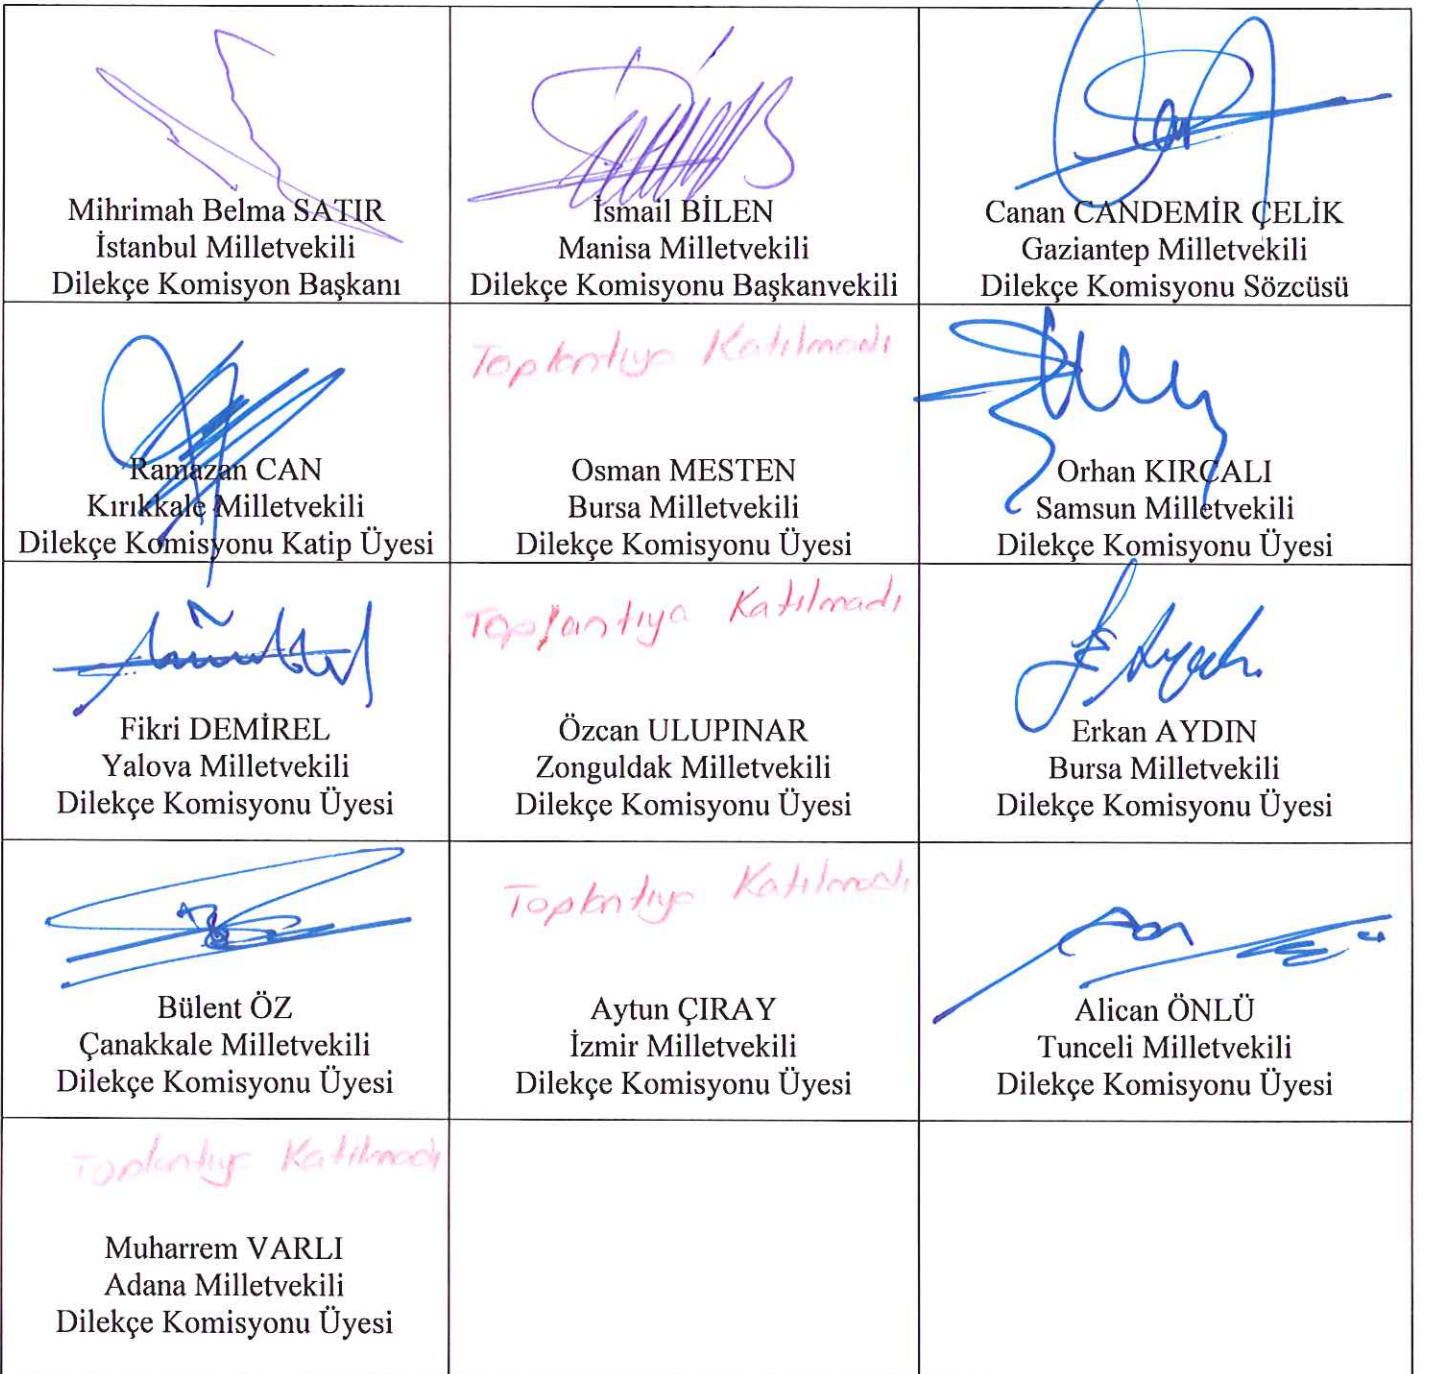 Mihrimah Belma SATIR
İstanbul Milletvekili
Dilekçe Komisyon Başkanı
İsmail BİLEN
Manisa Milletvekili
Dilekçe Komisyonu Başkanvekili
Canan CANDEMİR ÇELİK
Gaziantep Milletvekili
Dilekçe Komisyonu Sözcüsü
Ramazan CAN
Kırıkkale Milletvekili
Dilekçe Komisyonu Katip Üyesi
Toplantıya Katılmadı
Osman MESTEN
Bursa Milletvekili
Dilekçe Komisyonu Üyesi
Orhan KIRCALI
Samsun Milletvekili
Dilekçe Komisyonu Üyesi
Fikri DEMİREL
Yalova Milletvekili
Dilekçe Komisyonu Üyesi
Toplantıya Katılmadı
Özcan ULUPINAR
Zonguldak Milletvekili
Dilekçe Komisyonu Üyesi
Erkan AYDIN
Bursa Milletvekili
Dilekçe Komisyonu Üyesi
Bülent ÖZ
Çanakkale Milletvekili
Dilekçe Komisyonu Üyesi
Toplantıya Katılmadı
Aytun ÇIRAY
İzmir Milletvekili
Dilekçe Komisyonu Üyesi
Alican ÖNLÜ
Tunceli Milletvekili
Dilekçe Komisyonu Üyesi
Toplantıya Katılmadı
Muharrem VARLI
Adana Milletvekili
Dilekçe Komisyonu Üyesi